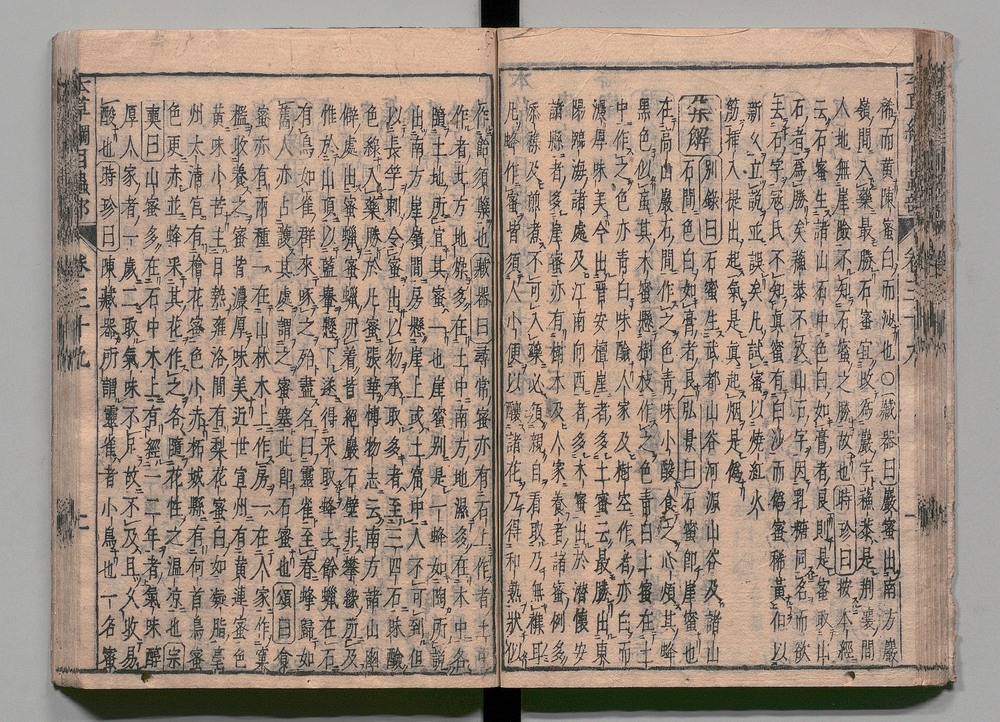 稀而黄陳蜜白而沙也○藏器曰巖蜜出南方巖
嶺間入藥最勝石蜜宜改為巖字蘓恭是荆襄間
人地無崖險不知石蜜之勝故也時珍曰按本經
云石蜜生諸山石中色白如膏者良則是蜜取山
石者為勝矣蘓恭不考山石字因乳糖同名而欲
去石字冦氏不知真蜜有白沙而偽蜜稀黄但以
新久立說並誤矣凡試蜜以燒紅火
筯挿入提出起氣是真起烟是偽
集解別錄曰石蜜生武都山谷河源山谷及諸山
石間色白如膏者良弘景曰石蜜即崖蜜也
在高山巖石間作之色青味小醶食之心煩其蜂
黒色似䖟其木蜜懸樹枝作之色青白土蜜在土
中作之色亦青白味醶人家及樹空作者亦白而
濃厚味美今出晋安檀崖者多土蜜云最勝出東
陽臨海諸處及江南向西者多木蜜出於潜懐安
諸縣者多崖蜜亦有樹木及人家養者諸蜜例多
添雜及煎煮不可入藥必須親自看取乃無襍耳
凡蜂作蜜皆須人小便以釀諸花乃得和熟狀似
作飴須蘖也藏器曰尋常蜜亦有木上作者土中
作者北方地燥多在土中南方地濕多在木中各
隨土地所宜其蜜一也崖蜜別是一蜂如陶所說
出南方崖嶺間房懸崖上或土窟中人不可到但
以長竿刺令蜜出以物承取多者至三四石味醶
色緑入藥勝於凡蜜張華博物志云南方諸山幽
僻處出蜜蠟蜜蠟所着皆絶巖石壁非攀縁所及
惟於山頂以籃轝懸下遂得采取蜂去餘蠟在石
有鳥如雀群來啄之殆盡名曰靈雀至春蜂歸如
舊人亦占護其處謂之蜜塞此即石蜜也頌曰食
蜜亦有兩種一在山林木上作房一在人家作窠
檻收養之蜜皆濃厚味美近世宣州有黄連蜜色
黄味小苦主目熱雍洛間有梨花蜜白如凝脂亳
州太清宫有檜花蜜色小赤柘城縣有何首烏蜜
色更赤並蜂采其花作之各隨花性之温凉也宗
奭曰山蜜多在石中木上有經一二年者氣味醇
厚人家者一歲二取氣味不足故不及且久收易
酸也時珍曰陳藏器所謂靈雀者小鳥也一名蜜
本草綱目蟲部 卷三十九 二